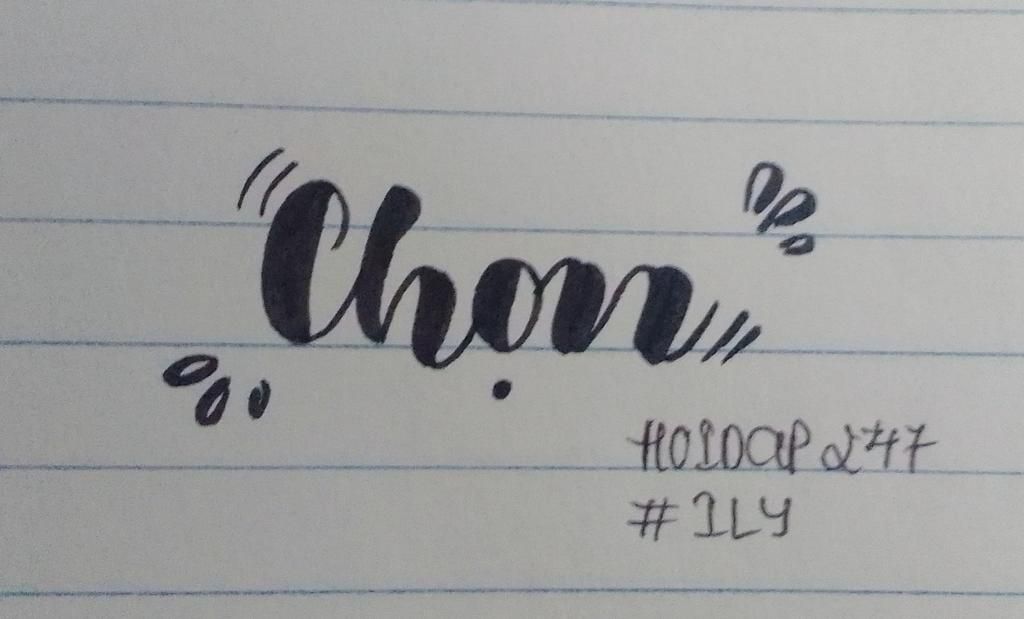 Chọn
HOIDAP247
#ILY